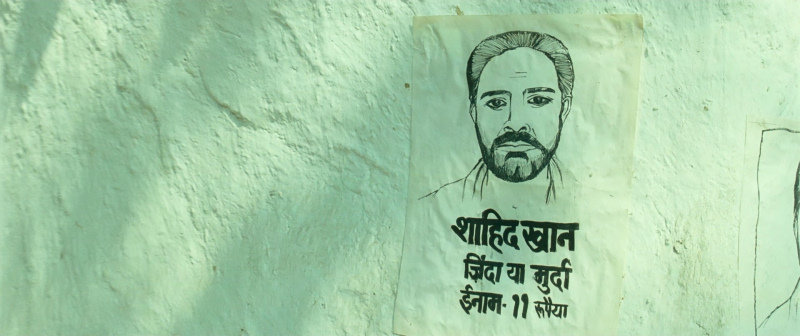 शाहिद खान
ज़िंदा या मुर्दा
ईनाम- 11 रूपैया